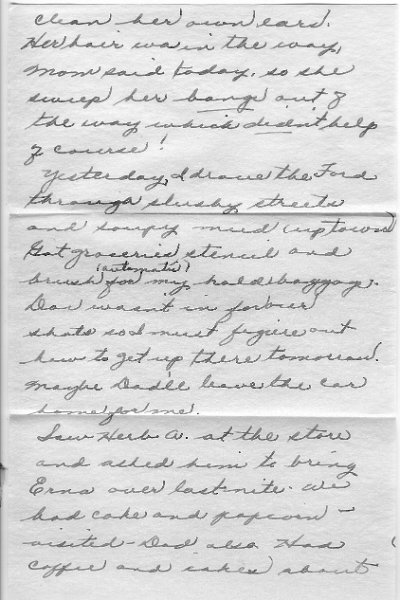 clean her own ears.
Her hair wa in the way,
Mom said today, so she
sweep her bangs out of
the way which didn't help
of course!
Yesterday, I drove the Ford
through slushy streets
and soupy mud (uptown)
Got groceries, stencil and
(automatic!)
brush for my hold baggage.
Doc wasn't in for our
shots so I must figure out
how to get up there tomorrow.
Maybe Dad'll leave the car
home for me.
Saw Herb A. at the store
and asked him to bring
Erna over last nite. We
had cake and popcorn –
visited – Dad also. Had
coffee and cakes about